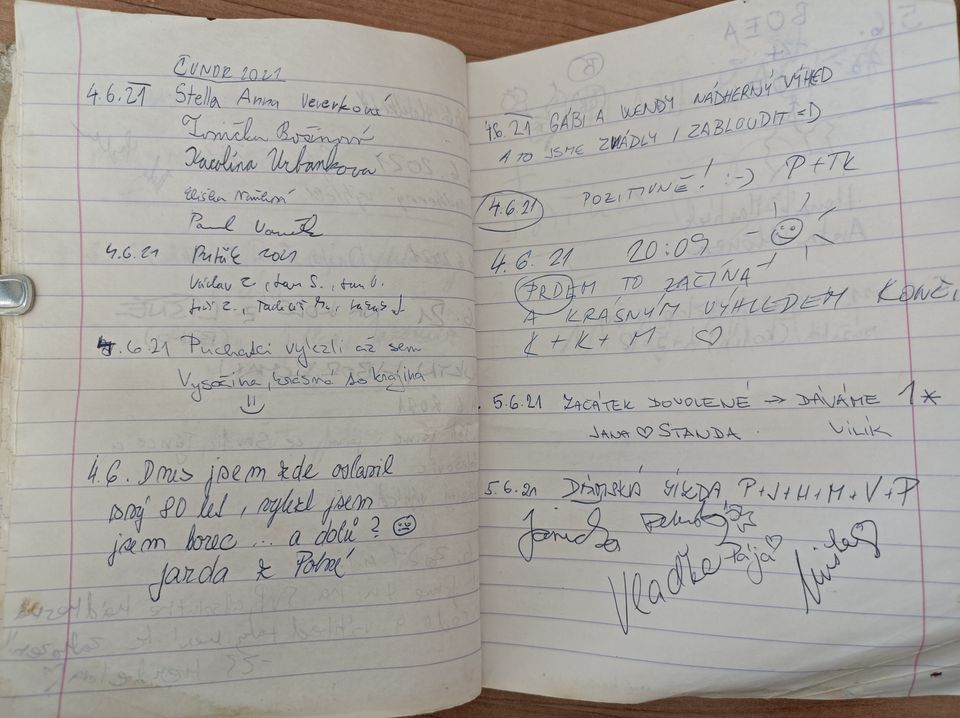 ČUNDR 2021
4.6.21 Stella Anna Veverková
Karolína Urbánková
Eliška
Pavel
4.6.21 2021
Václav Z., Jan S., Jan V.
4.6.21 Puchaláci vylezli až sem
Vysočina, krásná to krajina
=)
4.6. Dnes jsem zde oslavil
svý 80 let, vylezl jsem
jsem borec ... a dolů? ☺
Jarda z Polné
4.6.21 GÁBI A WENDY NÁDHERNÝ VÝHED
A TO JSME ZVÁDLY I ZABLOUDIT =D
4.6.21 POZITIVNĚ! :-) P+TK
4.6.21 20:09 ☺
PRDEM TO ZAČÍNÁ
A KRÁSNÝM VÝHLEDEM KONČÍ,
K + K + M ♡
5.6.21 ZAČÁTEK DOVOLENÉ → DÁVÁME 1*
JANA ♡ STANDA. VILÍK
5.6.21 DÁMSKÁ JÍZDA P+J+H+M+V+P
Vlaďka Pája♡